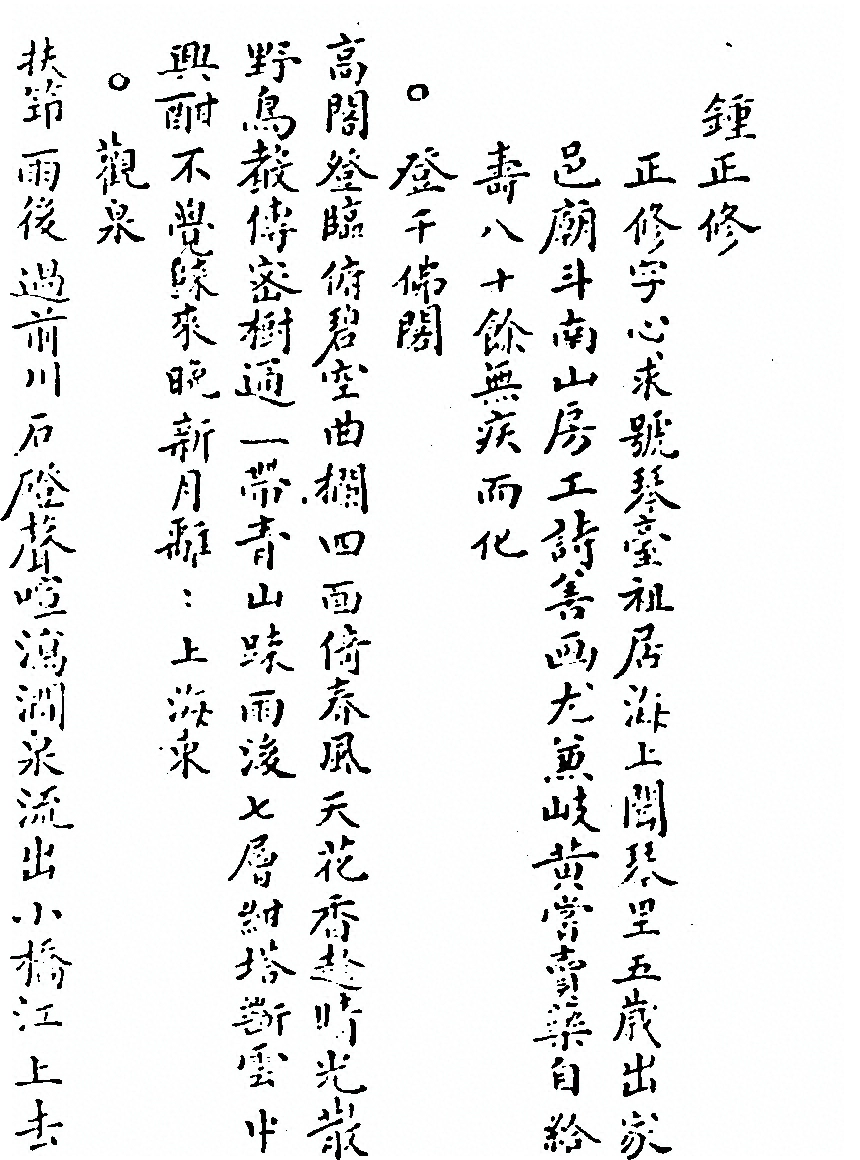 鍾正修
正修字心求號琴臺祖居海上聞琴里五歲出家
邑廟斗南山房工詩善画尤兼岐黄嘗賣藥自給
壽八十餘無疾而化
○登千佛閣
高閣登臨俯碧空曲欄四面倚春風天花香趁晴光散
野鳥聲傳密樹通一帶青山疎雨後七層紺塔斷雲中
興酣不覺歸來晚新月離：上海東
○觀泉
扶筇雨後過前川石磴聲喧瀉澗泉流出小橋江上去